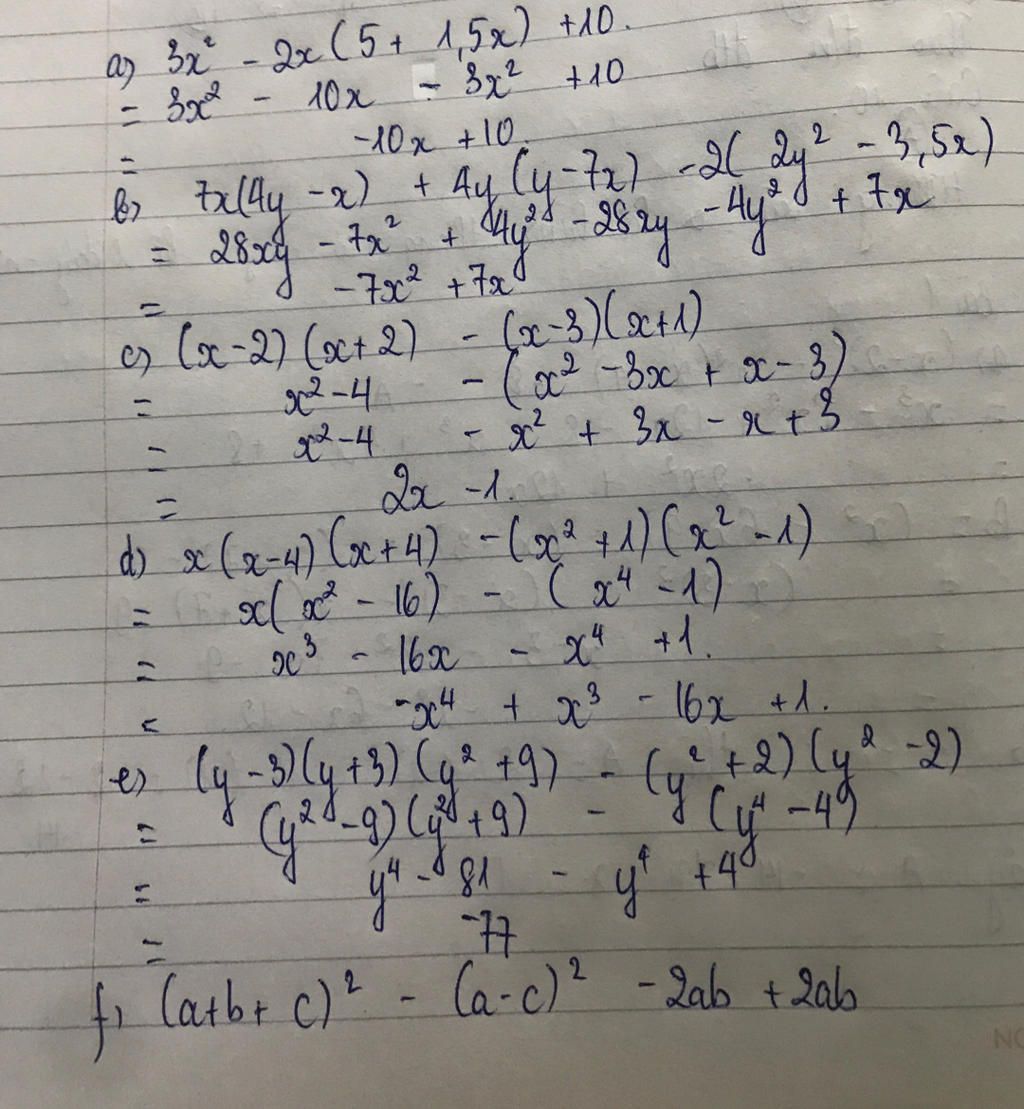 a) 3x² - 2x(5 + 1,5x) +10.
= 3x² - 10x - 3x² +10
= -10x +10.
b) 7x(4y - x) + 4y(y-7x) -2( 2y² - 3,5x)
= 28xy - 7x² + 4y² - 28xy - 4y² + 7x
= -7x² +7x
c) (x-2)(x+2) - (x-3)(x+1)
= x²-4 - (x² -3x + x-3)
= x²-4 - x² + 3x - x + 3
= 2x -1.
d) x(x-4)(x+4) - (x² +1)(x² -1)
= x(x² - 16) - (x⁴ -1)
= x³ - 16x - x⁴ +1.
= -x⁴ + x³ - 16x +1.
e) (y-3)(y+3)(y² +9) - (y² +2)(y² -2)
= (y² -9)(y² +9) - (y⁴ -4)
= y⁴ - 81 - y⁴ +4
= -77
f) (a+b+ c)² - (a-c)² -2ab +2ab